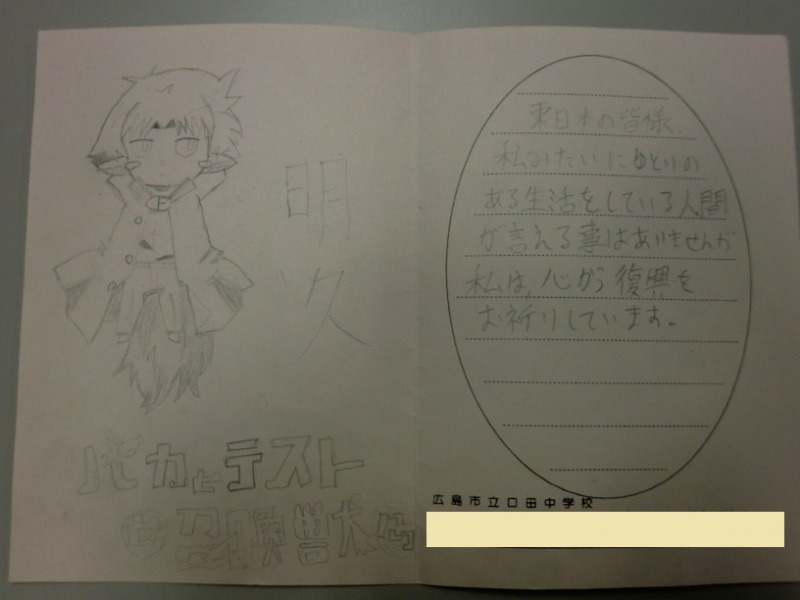 明久
バカとテスト
と召喚獣
東日本の皆様
私みたいにゆとりの
ある生活をしている人間
が言える事はありませんが
私は、心から復興を
お祈りしています。
広島市立口田中学校